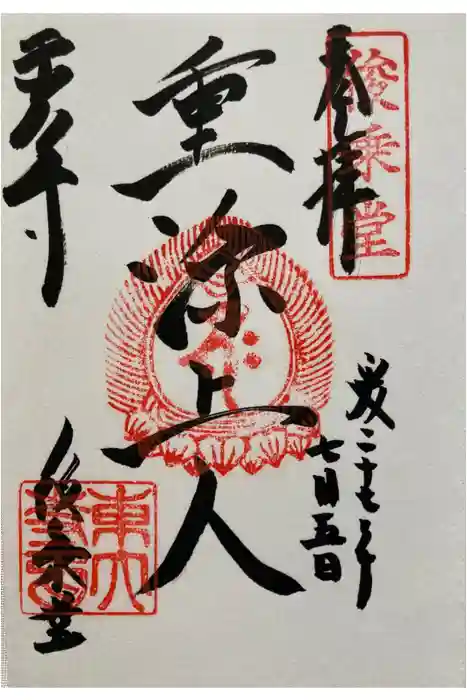 奉拝
俊乗堂
二十七年
七月五日
重源上人
東大寺
俊乗堂
東大